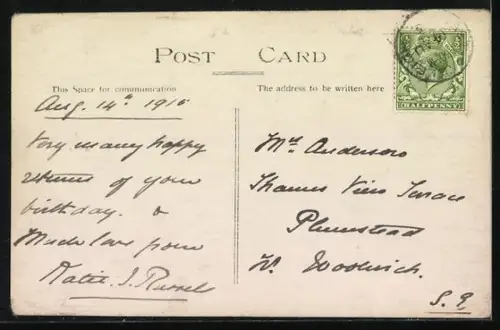 POST CARD
This Space for communication
The address to be written here
Aug. 14th 1915
Very many happy
returns of your
birthday. &
Much love from
Katie. J. Russel
HALFPENNY
Mrs Anderson
Thames View Terrace
Plumstead
Nr. Woolwich.
S. E.